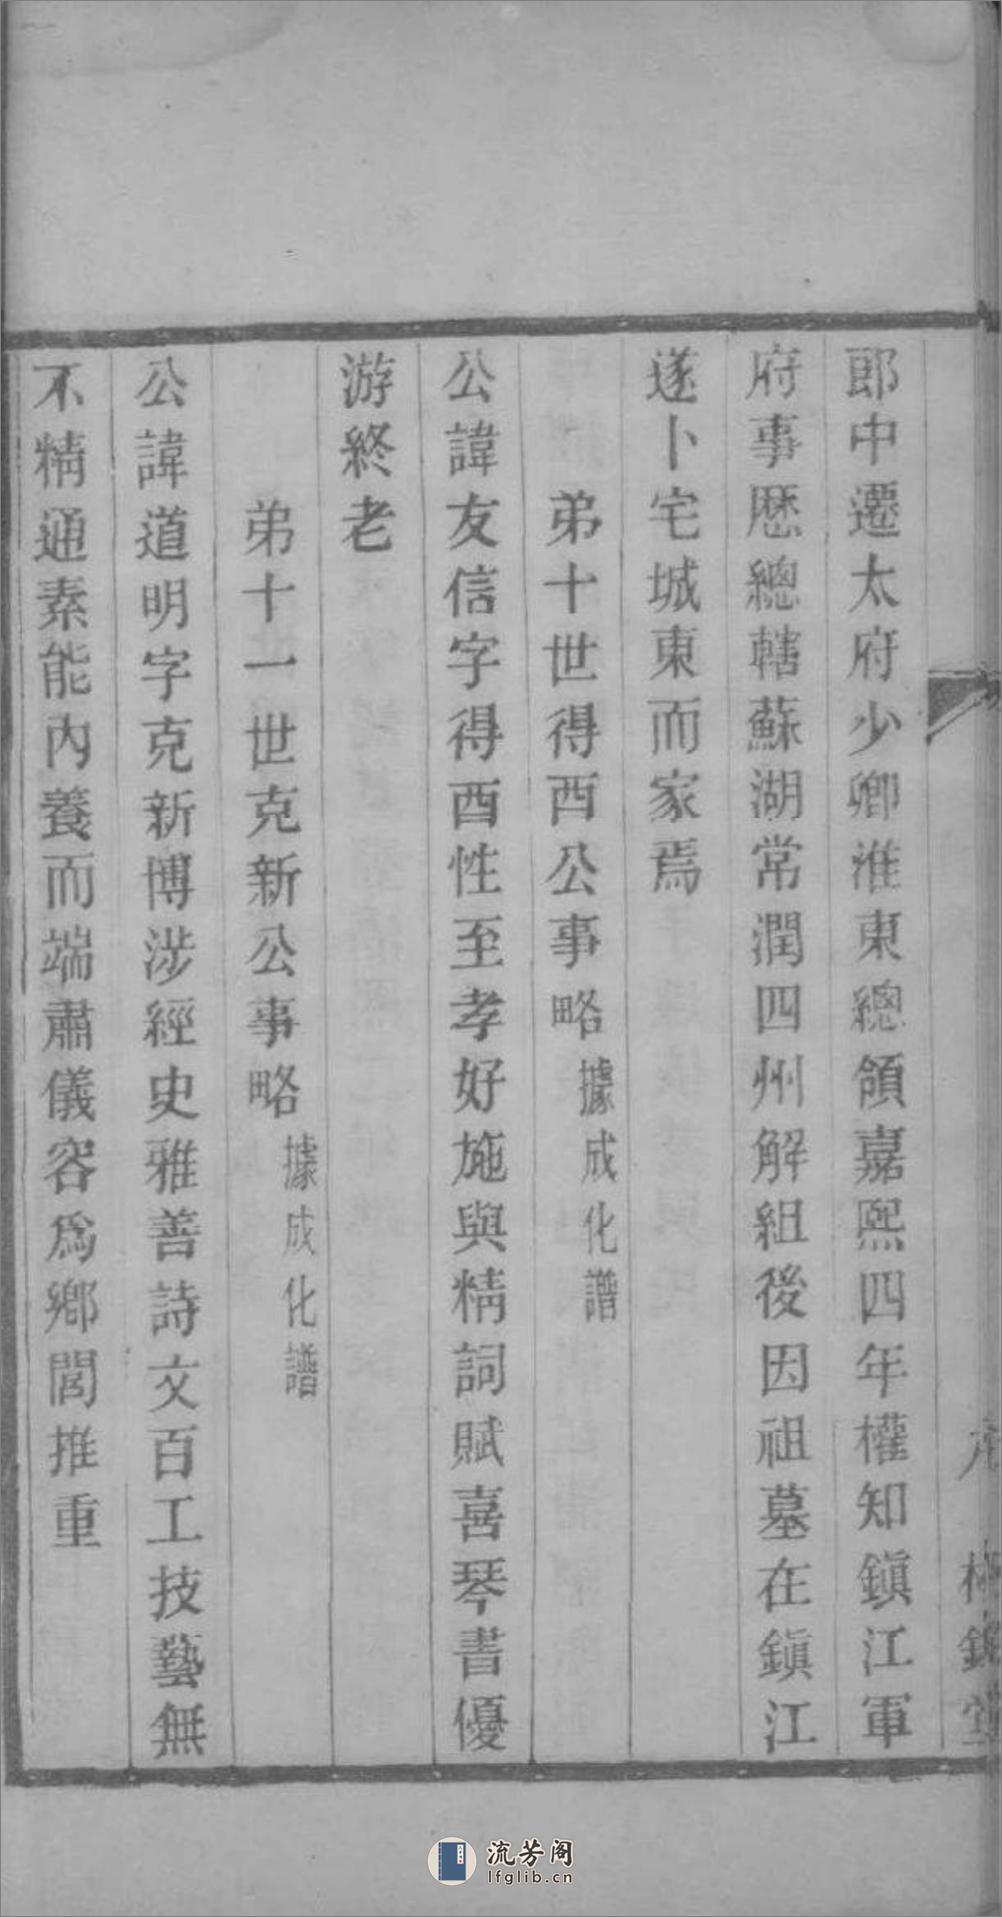 郎中遷太府少卿淮東總領嘉熙四年權知鎭江軍
府事歴總轄蘇湖常潤四州解組後因祖墓在鎭江
遂卜宅城東而家焉
弟十世得酉公事略據成化譜
公諱友信字得酉性至孝好施與精詞賦喜琴書優
游終老
弟十一世克新公事略據成化譜
公諱道明字克新博涉經史雅善詩文百工技藝無
不精通素能內養而端肅儀容爲鄉閭推重
流芳阁
lfglib.cn